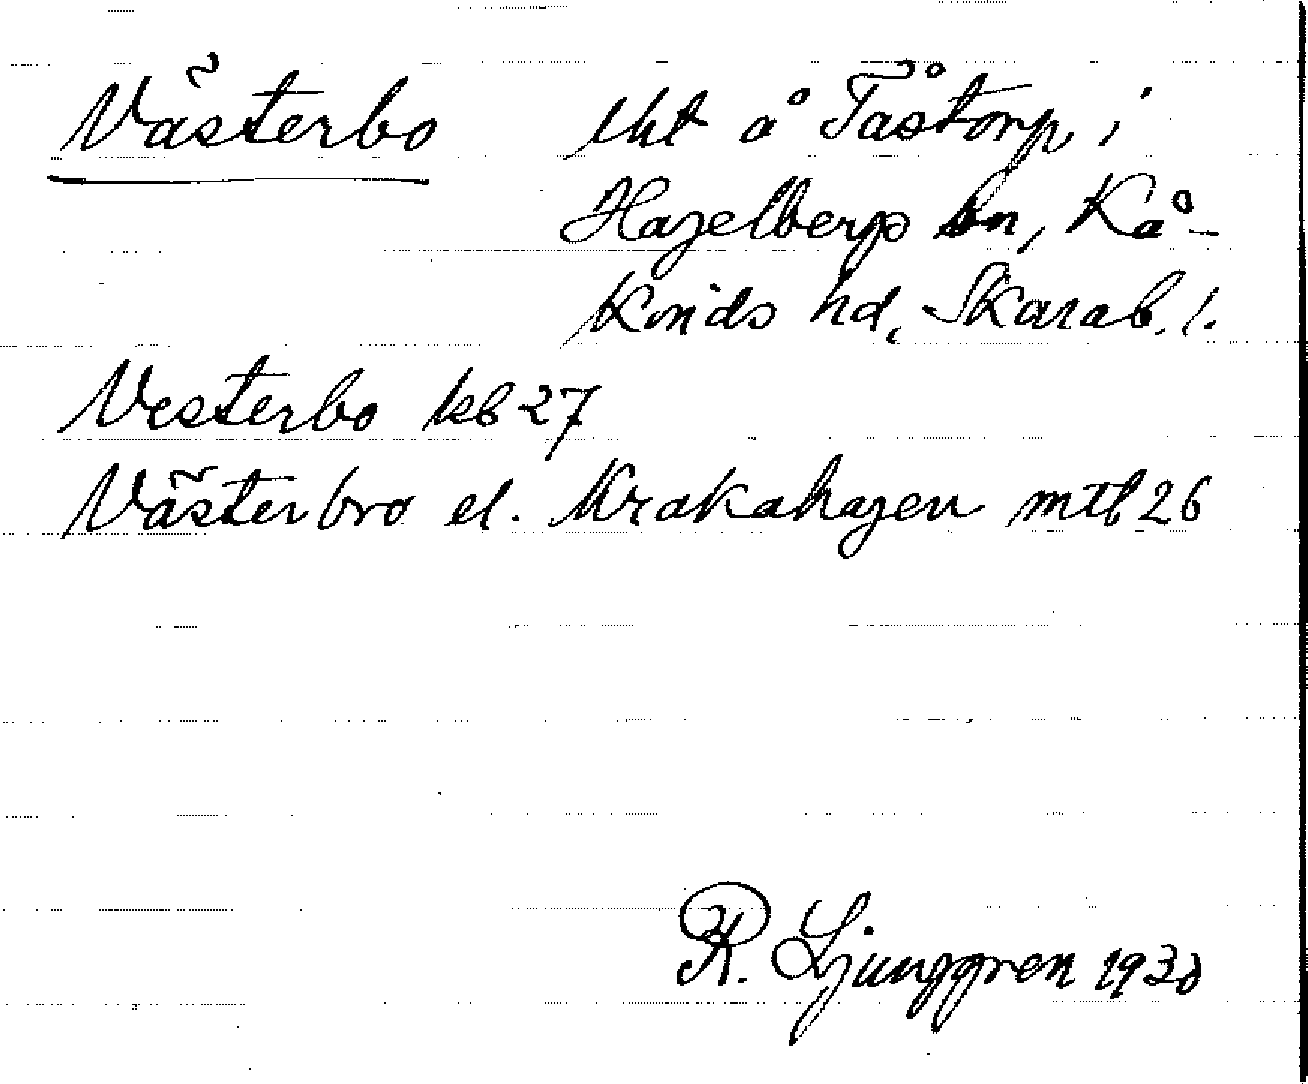 Västerbo lht å Tåstorp, i
Hagelbergs sn, Kå-
kinds hd, Skarab. l.
Vesterbo kb 27
Västerbro el. Krakahagen mtb 26
R. Ljunggren 1930